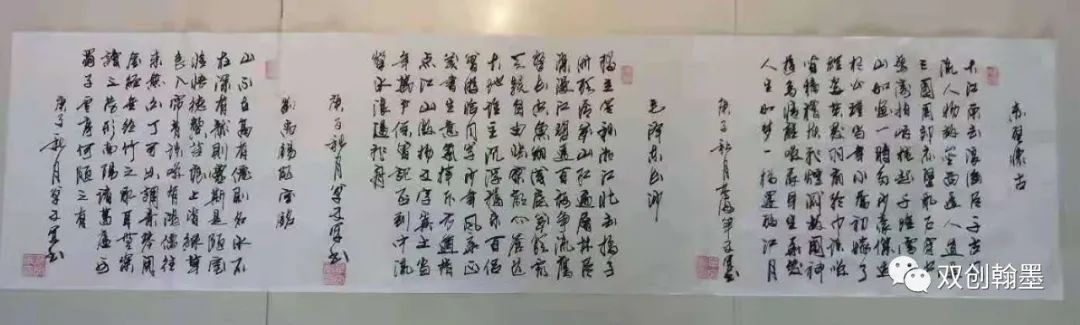 赤壁怀古
大江东去浪淘尽千古风
流人物故垒西边人道是
三国周郎赤壁乱石穿空
惊涛拍岸卷起千堆雪江
山如画一时多少豪杰遥
想公瑾当年小乔初嫁了
雄姿英发羽扇纶巾谈笑
间樯橹灰飞烟灭故国神
游多情应笑我早生华发
人生如梦一樽还酹江月
庚子秋月
毛泽东长沙
独立寒秋湘江北去橘子
洲头看万山红遍层林尽
染漫江碧透百舸争流鹰
击长空鱼翔浅底万类霜
天竞自由怅寥廓问苍茫
大地谁主沉浮携来百侣
曾游少年风华正
茂书生意气挥斥方遒指
点江山激扬文字粪土当
年万户侯曾记否到中流
击水浪遏飞舟
庚子秋月书
刘禹锡陋室铭
山不在高有仙则名水不
在深有龙则灵斯是陋室
惟吾德馨苔痕上阶绿草
色入帘青谈笑有鸿儒往
来无白丁可以调素琴阅
金经无丝竹之乱耳无案
牍之劳形南阳诸葛庐西
蜀子云亭何陋之有
庚子秋月书
双创翰墨